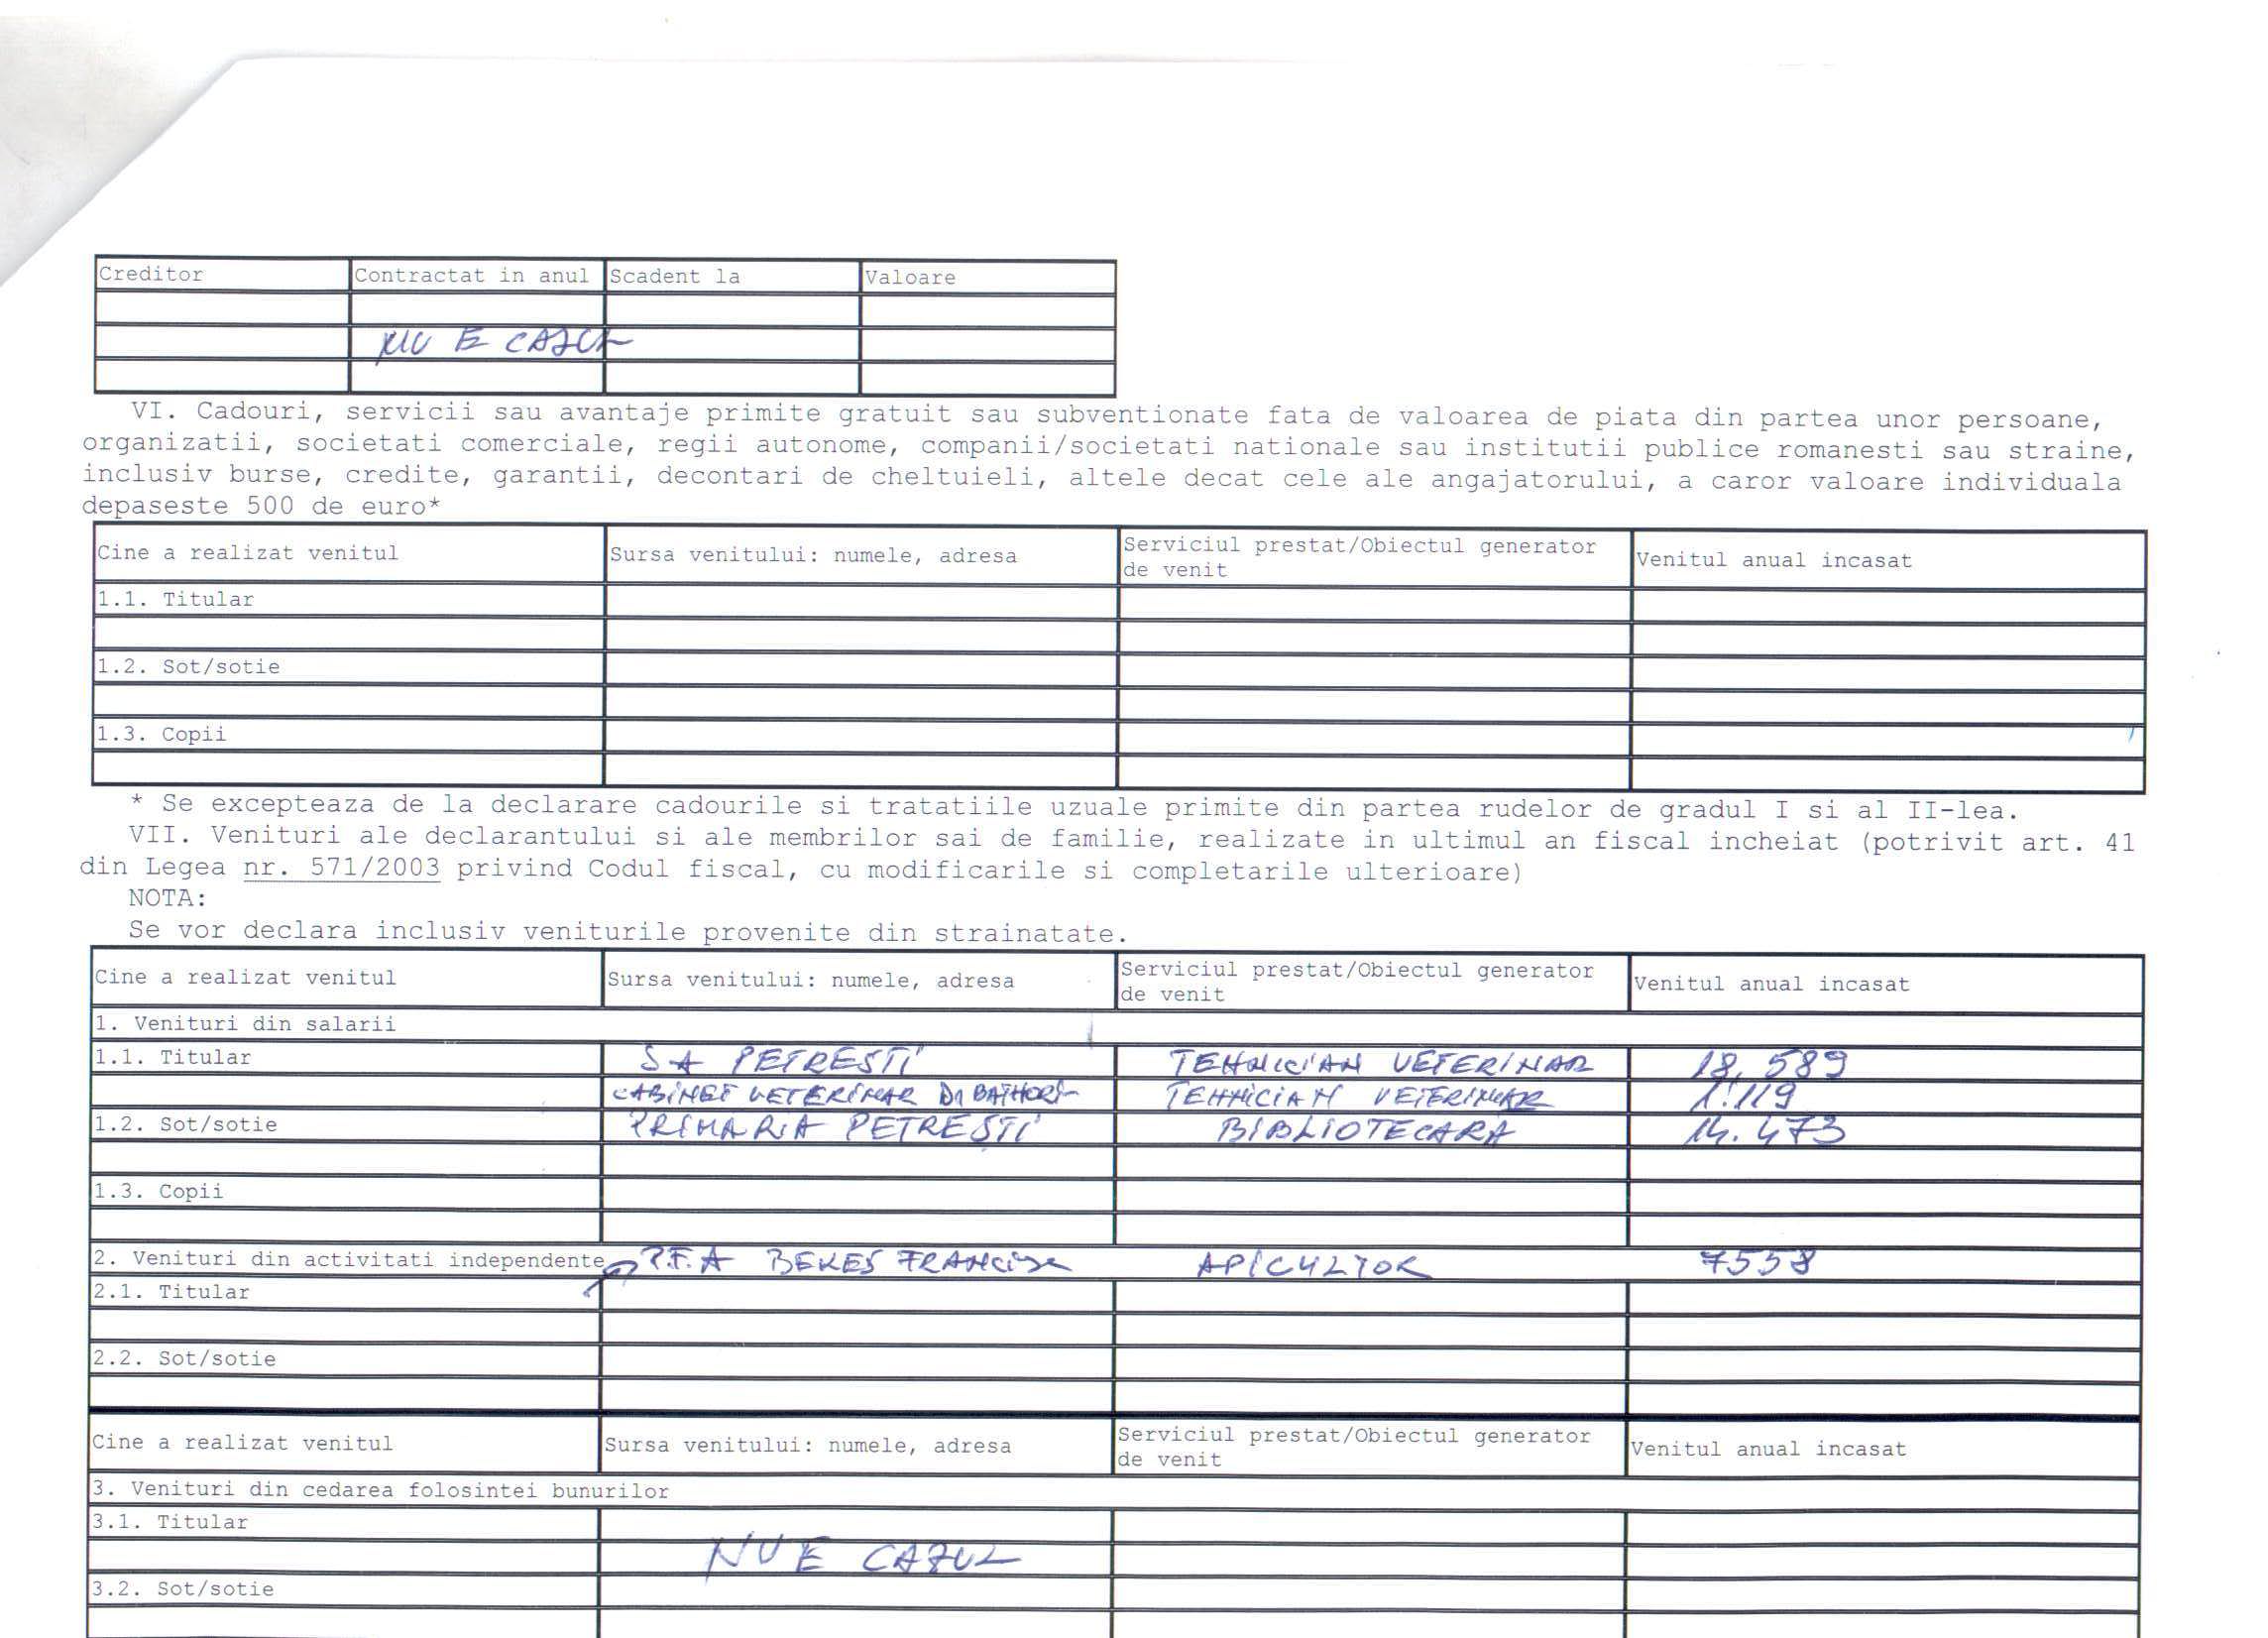 Creditor Contractat in anul Scadent la Valoare
NU E CAZUL
VI. Cadouri, servicii sau avantaje primite gratuit sau subventionate fata de valoarea de piata din partea unor persoane,
organizatii, societati comerciale, regii autonome, companii/societati nationale sau institutii publice romanesti sau straine,
inclusiv burse, credite, garantii, decontari de cheltuieli, altele decat cele ale angajatorului, a caror valoare individuala
depaseste 500 de euro*
Cine a realizat venitul Sursa venitului: numele, adresa Serviciul prestat/Obiectul generator de venit Venitul anual incasat
1.1. Titular
1.2. Sot/sotie
1.3. Copii
* Se excepteaza de la declarare cadourile si tratatiile uzuale primite din partea rudelor de gradul I si al II-lea.
VII. Venituri ale declarantului si ale membrilor sai de familie, realizate in ultimul an fiscal incheiat (potrivit art. 41
din Legea nr. 571/2003 privind Codul fiscal, cu modificarile si completarile ulterioare)
NOTA:
Se vor declara inclusiv veniturile provenite din strainatate.
Cine a realizat venitul Sursa venitului: numele, adresa Serviciul prestat/Obiectul generator de venit Venitul anual incasat
1. Venituri din salarii
1.1. Titular SA PETRESTI TEHNICIAN VETERINAR 18.589
CABINET VETERINAR BATHORI TEHNICIAN VETERINAR 1.119
1.2. Sot/sotie PRIMARIA PETRESTI BIBLIOTECARA 14.473
1.3. Copii
2. Venituri din activitati independente P.F.A BEKES FRANCISC APICULTOR 7558
2.1. Titular
2.2. Sot/sotie
Cine a realizat venitul Sursa venitului: numele, adresa Serviciul prestat/Obiectul generator de venit Venitul anual incasat
3. Venituri din cedarea folosintei bunurilor
3.1. Titular
NU E CAZUL
3.2. Sot/sotie